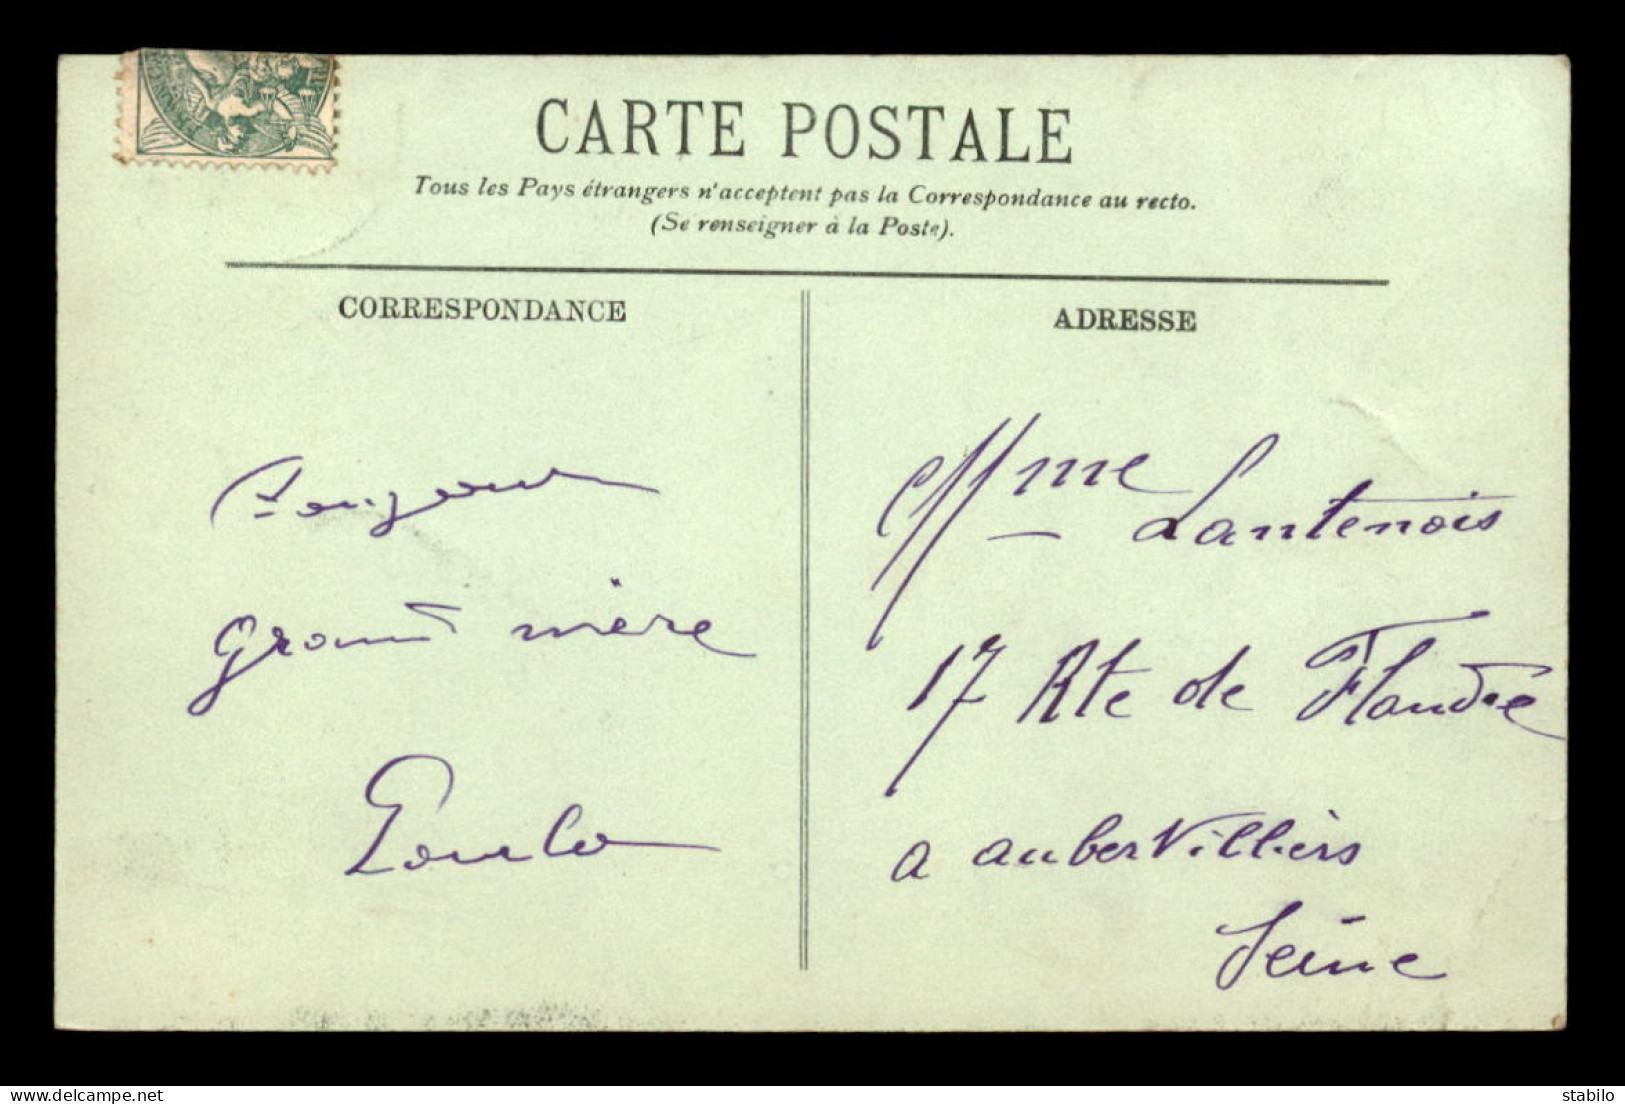 CARTE POSTALE
Tous les Pays étrangers n'acceptent pas la Correspondance au recto.
(Se renseigner à la Poste).
CORRESPONDANCE
grand mère
ADRESSE
Mme Lantenois
17 Rte de Flandre
a aubervilliers
Seine
www.delcampe.net
stabilo